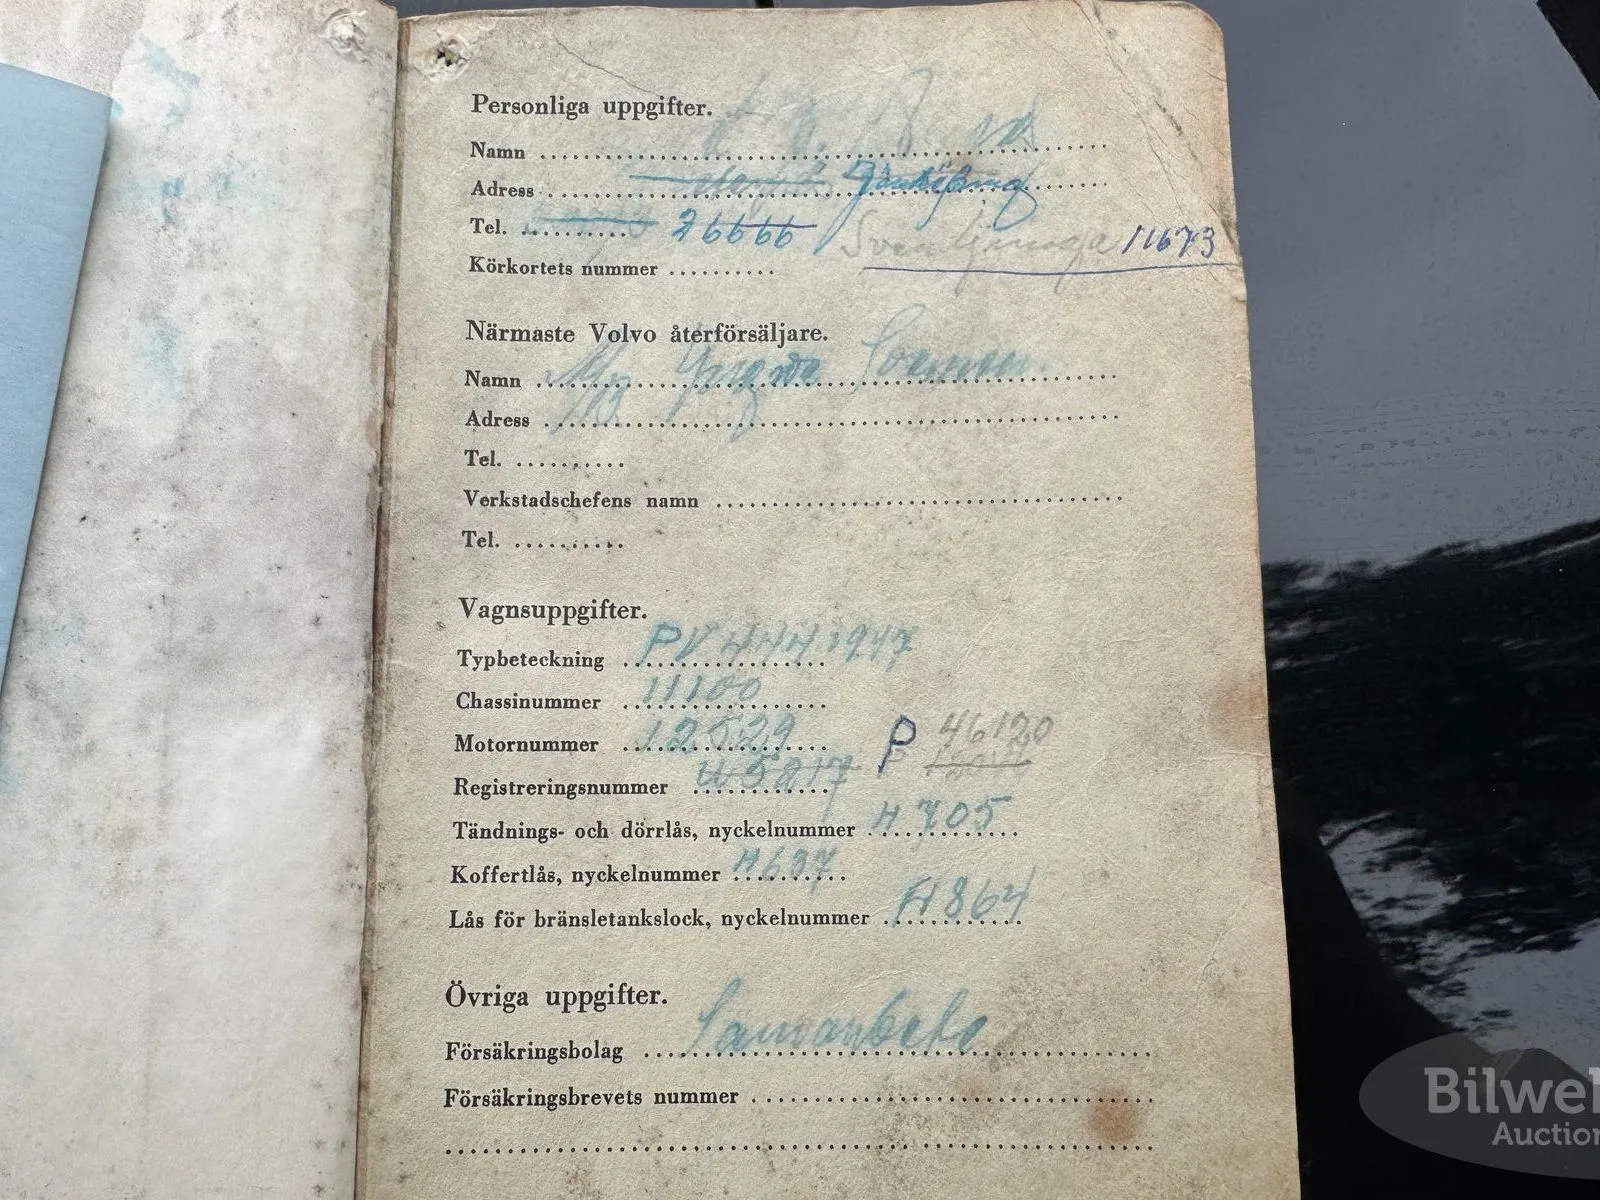 Personliga uppgifter.
Namn
Adress Jönköping
Tel. 26666 11673
Körkortets nummer
Närmaste Volvo återförsäljare.
Namn
Adress
Tel.
Verkstadschefens namn
Tel.
Vagnsuppgifter.
Typbeteckning PV 444 1947
Chassinummer 11100
Motornummer 12529 P 46120
Registreringsnummer U 5217
Tändnings- och dörrlås, nyckelnummer H 705
Koffertlås, nyckelnummer H637
Lås för bränsletankslock, nyckelnummer FH864
Övriga uppgifter.
Försäkringsbolag Samarbete
Försäkringsbrevets nummer
Bilwe
Auction